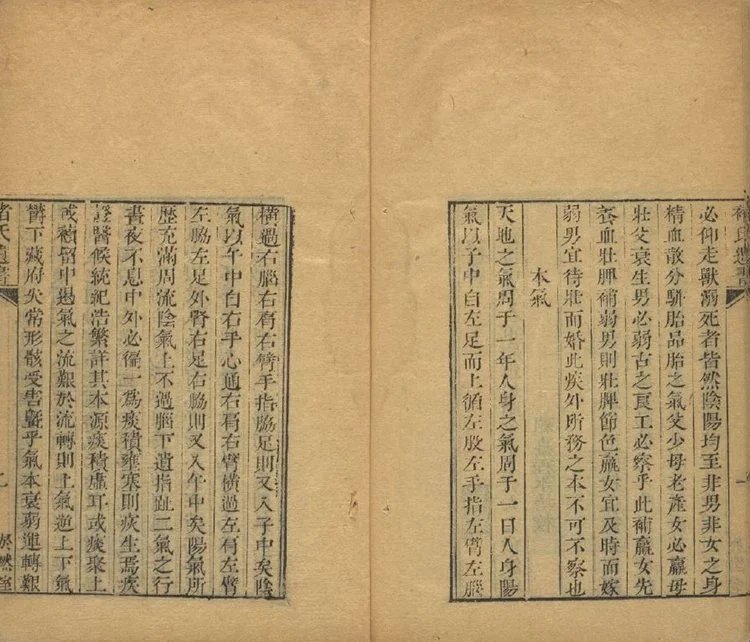 褚氏遺書
必仰走獸溺死者皆然陰陽均至非男非女之身
精血散分駢胎品胎之氣父少母老產女必羸母
壯父衰生男必弱古之良工必察乎此補羸女先
養血壯脾補弱男則壯脾節色羸女宜及時而嫁
弱男宜待壯而婚此疾外所務之本不可不察也
本氣
天地之氣周于一年人身之氣周于一日人身陽
氣以子中自左足而上循左股左手指左臂左腦
橫過右腦右肩右臂手指脇足則又入子中矣陰
氣以午中自右乎心通右肩右臂橫過左肩左臂
左脇左足外腎右足右脇則又入午中矣陽氣所
歷充滿周流陰氣上不過腦下遺指趾二氣之行
晝夜不息中外必徧一為痰積壅塞則疾生焉疾
證醫候統紀浩繁詳其本源痰積虛耳或痰聚上
或積留中遏氣之流艱於流轉則上氣逆上下氣
鬱下藏府失常形骸受害暨乎氣本衰弱運轉艱
褚氏遺書